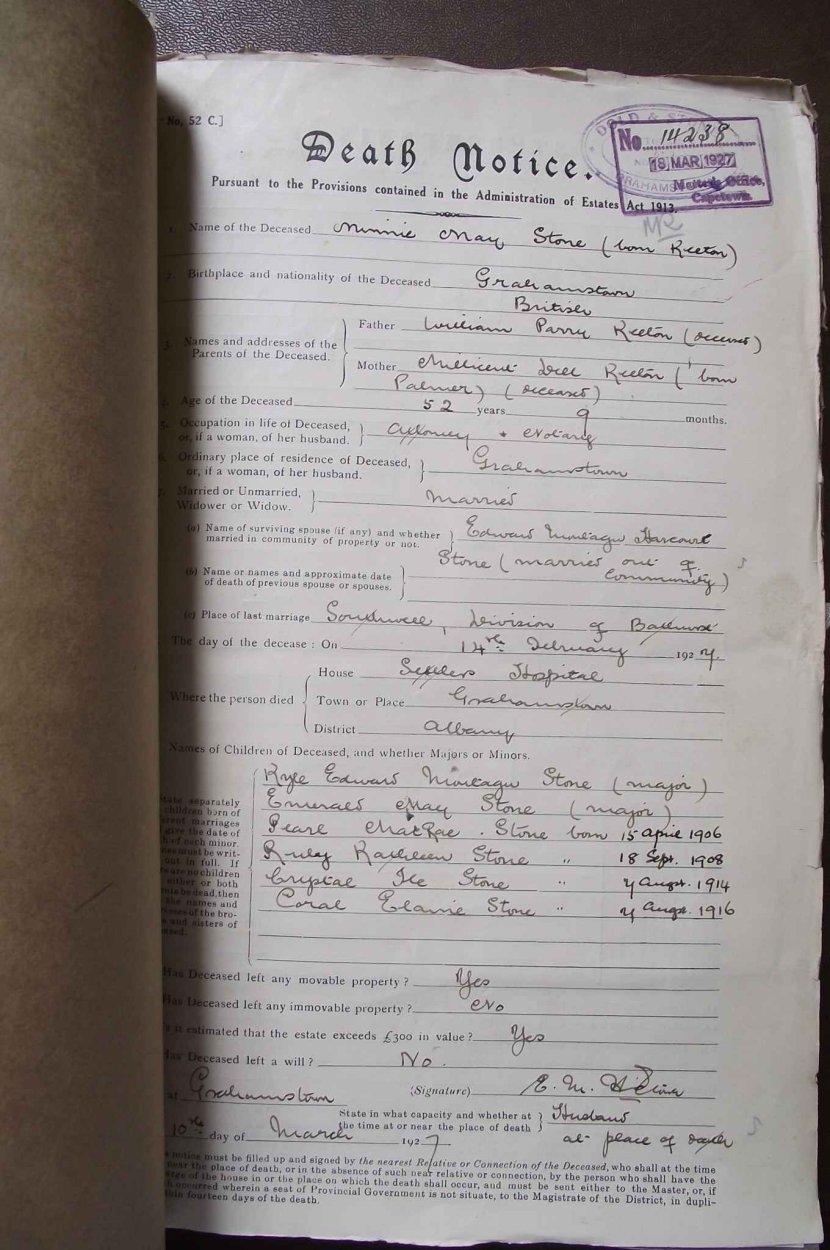 No. 52 C.]
DOLD & STONE
GRAHAMS
No. 14238
18 MAR 1927
Master's Office,
Capetown.
Death Notice.
Pursuant to the Provisions contained in the Administration of Estates Act 1913.
1. Name of the Deceased Minnie May Stone (born Keeton)
2. Birthplace and nationality of the Deceased Grahamstown
British
3. Names and addresses of the Parents of the Deceased.
Father William Parry Keeton (deceased)
Mother Millicent Dell Keeton (born
Palmer) (deceased)
4. Age of the Deceased 52 years 9 months.
5. Occupation in life of Deceased,
or, if a woman, of her husband. Attorney & Notary
6. Ordinary place of residence of Deceased,
or, if a woman, of her husband. Grahamstown
7. Married or Unmarried,
Widower or Widow. Married
(a) Name of surviving spouse (if any) and whether
married in community of property or not. Edward Montagu Harcourt
Stone (married out of
community)
(b) Name or names and approximate date
of death of previous spouse or spouses.
(c) Place of last marriage Southwell, Division of Bathurst
The day of the decease: On 14th February 1927.
Where the person died
House Settlers Hospital
Town or Place Grahamstown
District Albany
Names of Children of Deceased, and whether Majors or Minors.
State separately
children born of
marriages
give the date of
of each minor.
must be writ-
out in full. If
are no children
either or both
be dead, then
the names and
of the bro-
and sisters of
Edward Montagu Stone (major)
Emerald May Stone (major)
Pearl MacRae Stone born 15 April 1906
Ruby Kathleen Stone " 18 Sept. 1908
Crystal Ile Stone " 4 Augst. 1914
Coral Elaine Stone " 4 Augst. 1916
Has Deceased left any movable property? Yes
Has Deceased left any immovable property? No
Is it estimated that the estate exceeds £300 in value? Yes
Has Deceased left a will? No.
at Grahamstown (Signature) E. M. H Stone
State in what capacity and whether at
the time at or near the place of death Husband
at place of death
10th day of March 1927
notice must be filled up and signed by the nearest Relative or Connection of the Deceased, who shall at the time
near the place of death, or in the absence of such near relative or connection, by the person who shall have the
of the house in or the place on which the death shall occur, and must be sent either to the Master, or, if
occurred wherein a seat of Provincial Government is not situate, to the Magistrate of the District, in dupli-
fourteen days of the death.